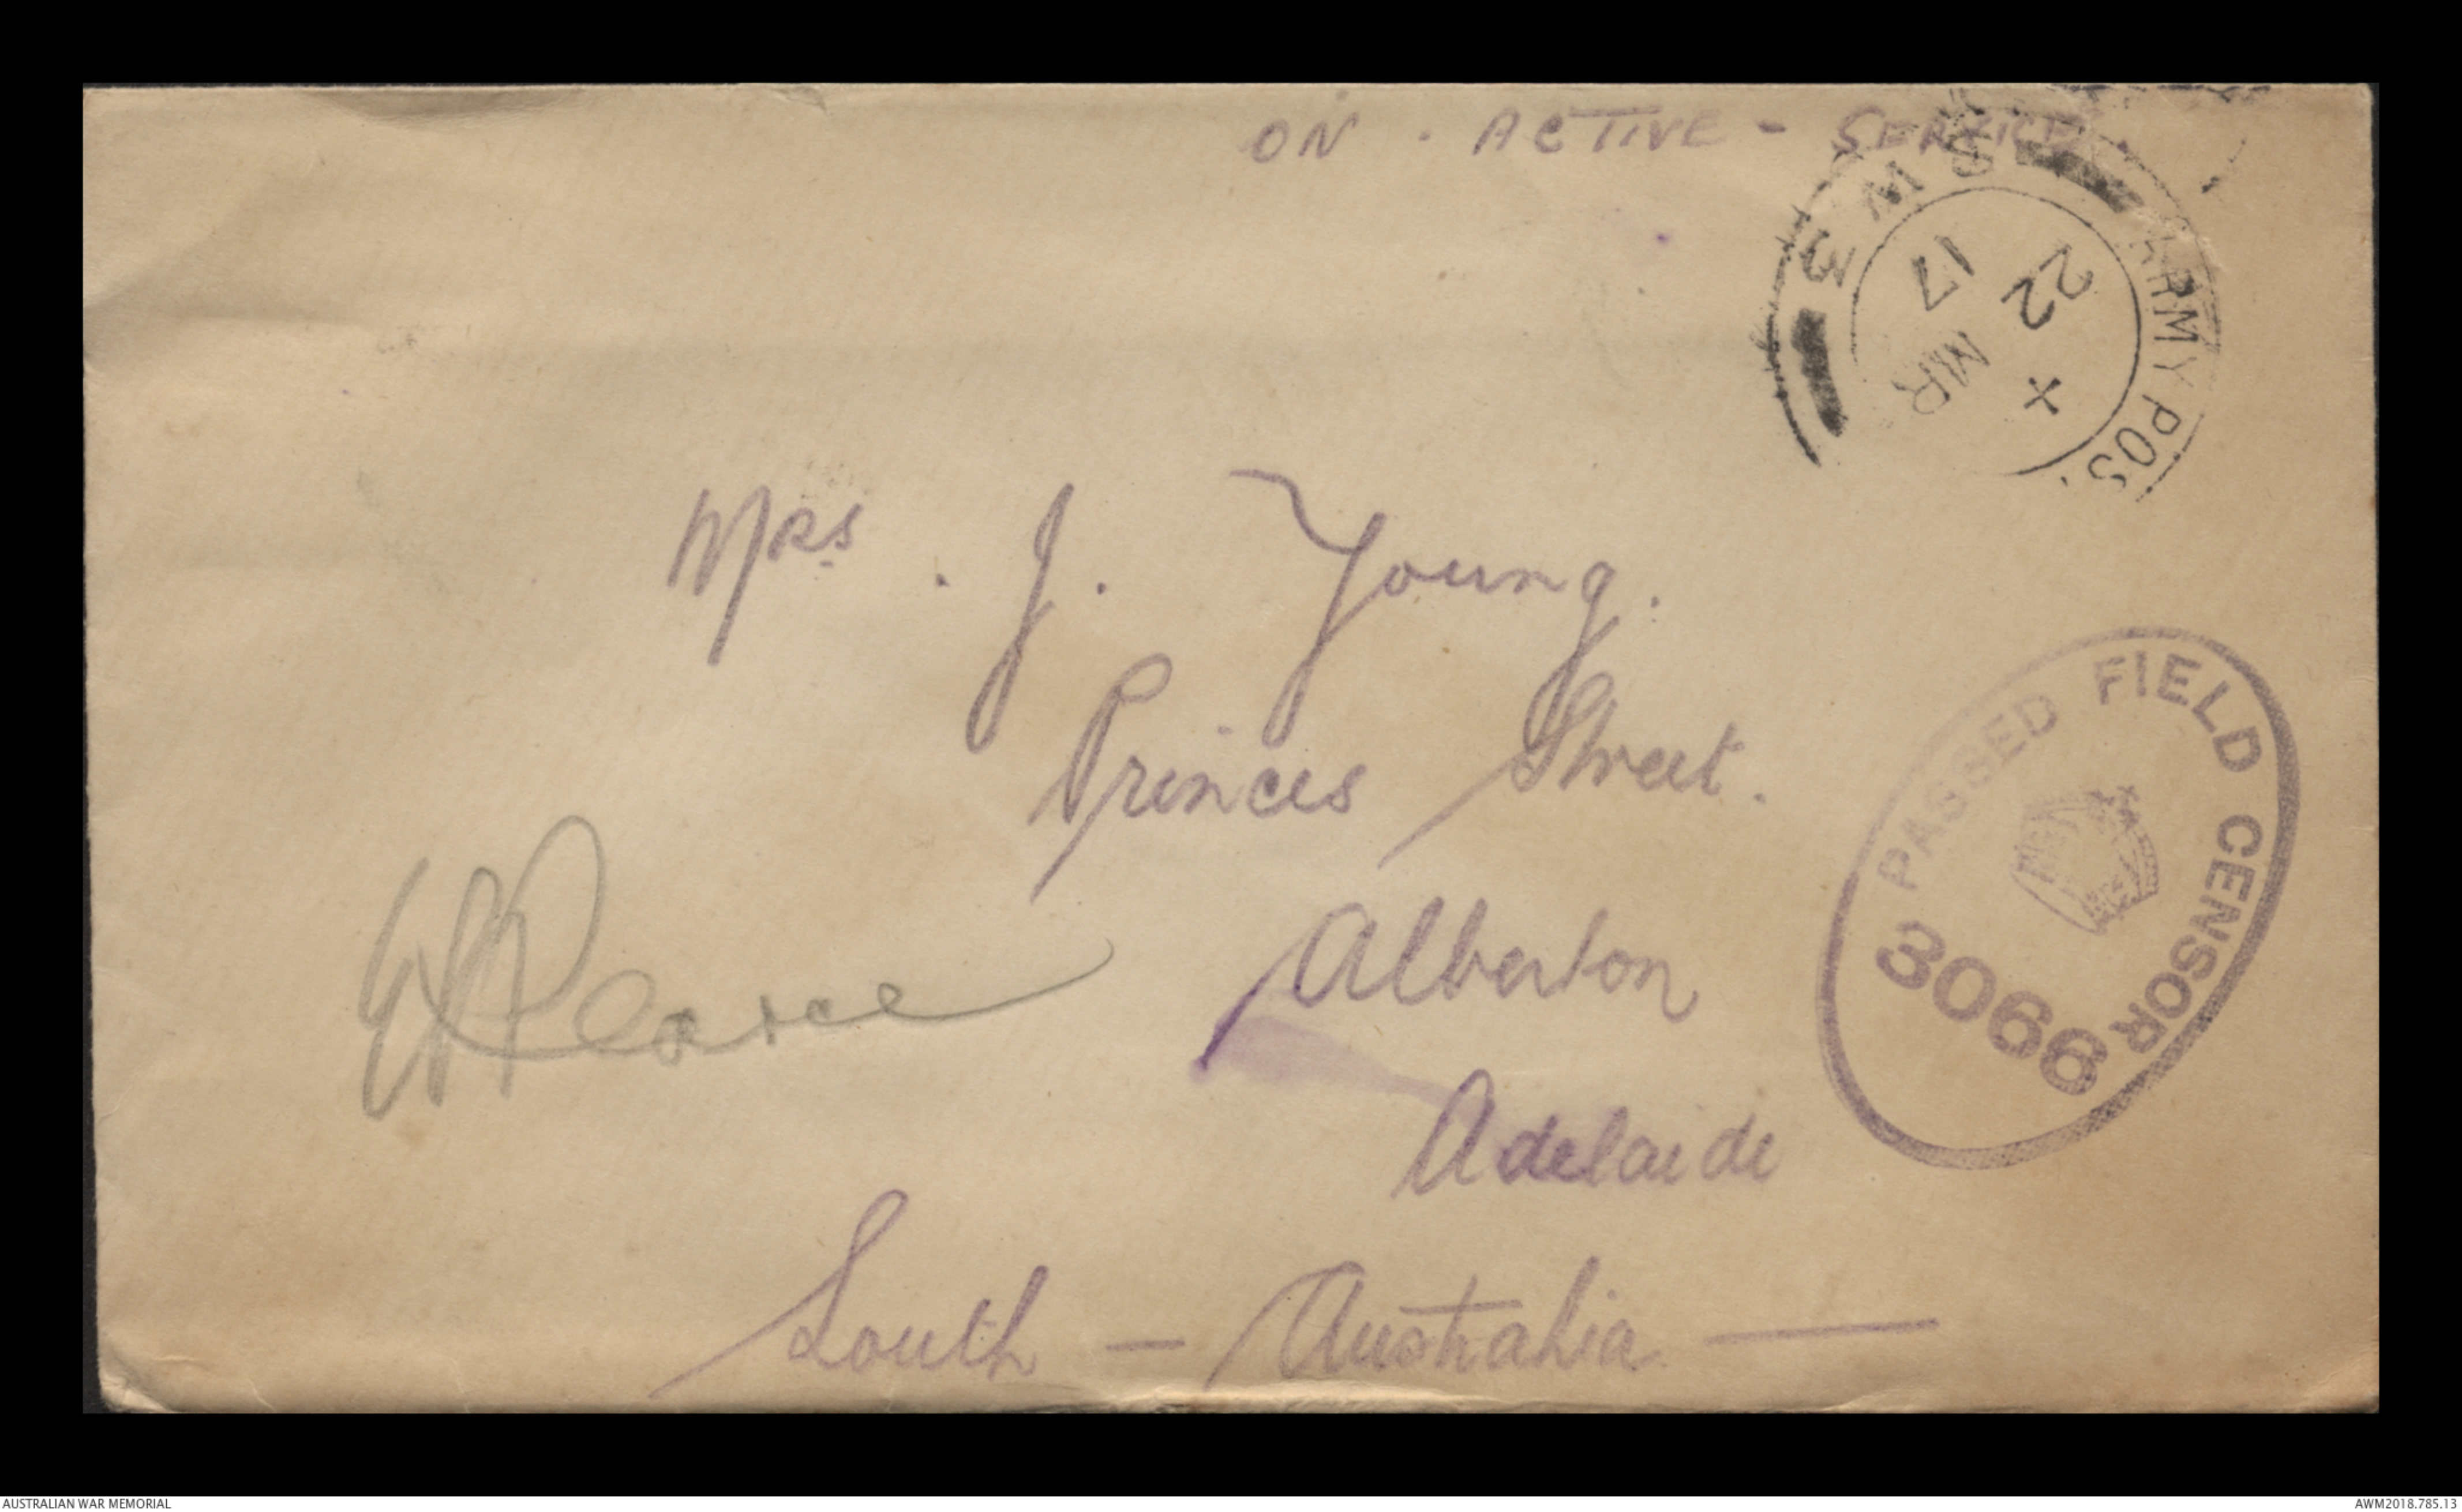 ON . ACTIVE - SERVICE.
ARMY POS
S W 3
X
22 MR
17
Mrs. J. Young.
Princes Street.
PASSED FIELD CENSOR
3069
Pearce
Alberton
Adelaide
South - Australia -
AUSTRALIAN WAR MEMORIAL
AWM2018.785.13